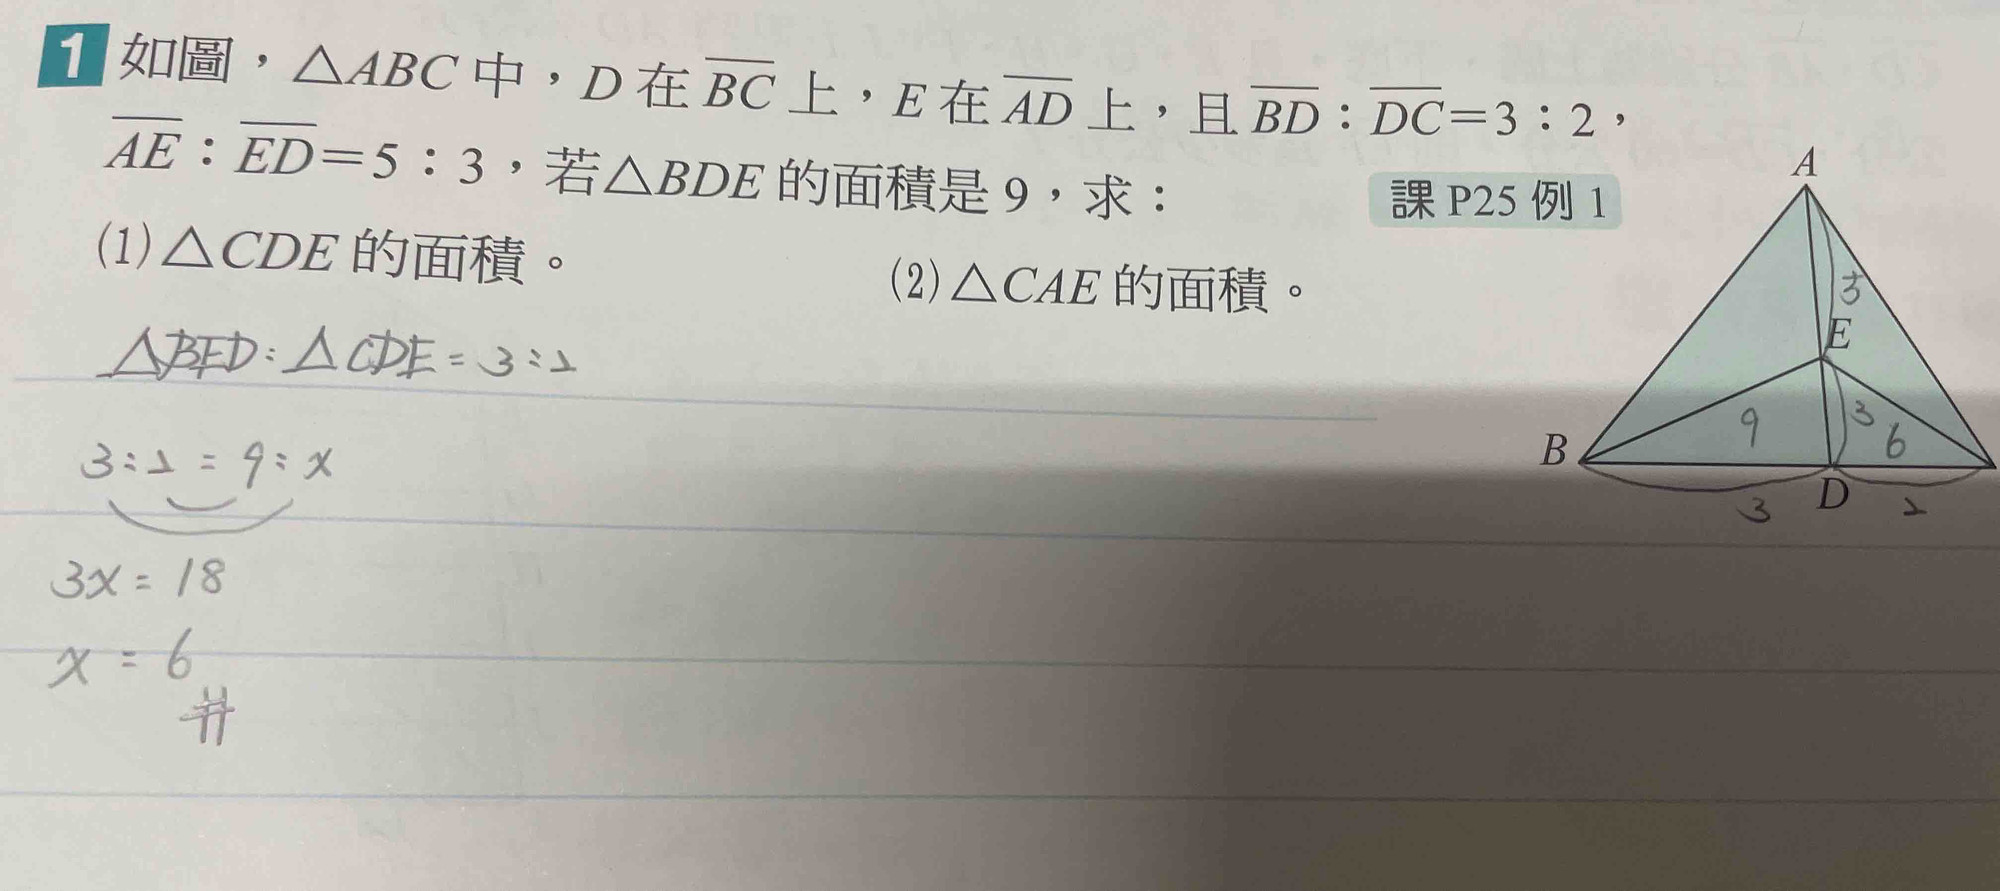 1 如圖，△ABC 中，D 在 BC 上，E 在 AD 上，且 BD：DC＝3：2，
AE：ED＝5：3，若△BDE 的面積是 9，求：
課 P25 例 1
(1)△CDE 的面積。
(2)△CAE 的面積。
△BED : △CDE = 3 : 2
3 : 2 = 9 : x
3x = 18
x = 6
A
E
3
9
6
B
D
3
2